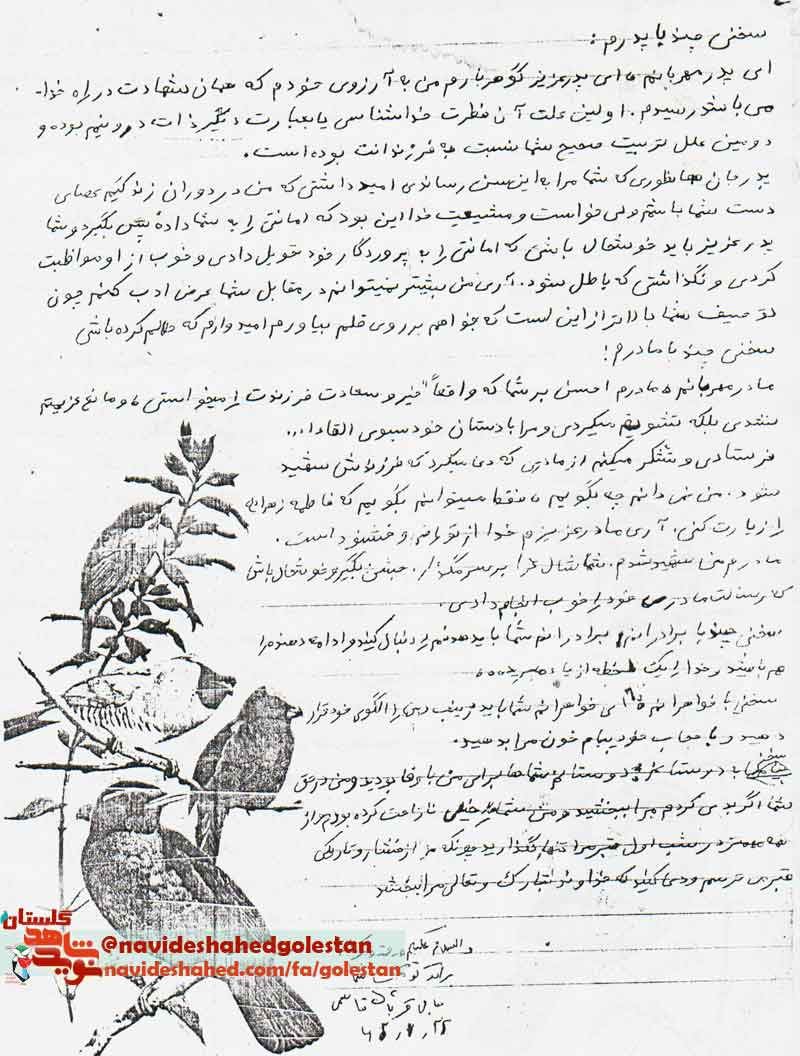 سخنی چند با پدرم:
ای پدر مهربانم ، ای پدر عزیز گوهربارم من به آرزوی خودم که همان شهادت در راه خدا
می باشد رسیدم. اولین علت آن فطرت خداشناسی یا بعبارت دیگر ذات درونیم بوده و
دومین علل تربیت صحیح شما نسبت به فرزندانت بوده است.
پدر جان همانطوری که شما مرا به این سن رساندی امید داشتی که من در دوران زندگیم عصای
دست شما باشم ولی خواست و مشیعت خدا این بود که امانتی را به شما داده پس بگیرد و شما
پدر عزیز باید خوشحال باشی که امانتی را به پروردگار خود تحویل دادی و خوب از او مواظبت
کردی و نگذاشتی که باطل شود. آری من بیشتر نمیتوانم در مقابل شما عرض ادب کنم چون
توصیف شما بالاتر از این است که بخواهم بر روی قلم بیاورم امیدوارم که حلالم کرده باشی
سخنی چند با مادرم!
مادر مهربانم ، مادرم احسن بر شما که واقعاً خیر و سعادت فرزندت را میخواستی ، و مانع عزیمتم
نشدی بلکه تشویقم میکردی و مرا با دستان خود بسوی القاءا...
فرستادی و تشکر میکنم از مادری که دعا میکرد که فرزندش شهید
شود. من نمی دانم چه بگویم ، فقط میتوانم بگویم که فاطمه زهرا
را زیارت کنی. آری مادر عزیزم خدا از تو راضی و خشنود است.
مادرم من شهید شدم. شما شال عزا بر سر مگذار. جشن بگیر و خوشحال باش
که رسالت مادری خود را خوب انجام دادی.
سخنی چند با برادرانم، برادرانم شما باید هدفم را دنبال کنید و ادامه دهنده راهم
باشید و خدا را یک لحظه از یاد مبرید
سخنی با خواهرانم ای خواهرانم شما باید زینب را الگوی خود قرار
دهید و با حجاب خود پیام خون مرا بدهید.
سخنی با دوستانم دوستانم شماها برای من با وفا بودید و من در حق
شما اگر بدی کردم مرا ببخشید و من شما را خیلی ناراحت کرده بودم و از
همه مهمتر در شب اول قبر مرا تنها نگذارید چونکه من از فشار و تاریکی
قبر می ترسم و دعا کنید که خداوند تبارک و تعالی مرا ببخشد
والسلام علیکم
قربان قاسمی
گلستان
نوید شاهد
@navideshahedgolestan
navideshahed.com/fa/golestan